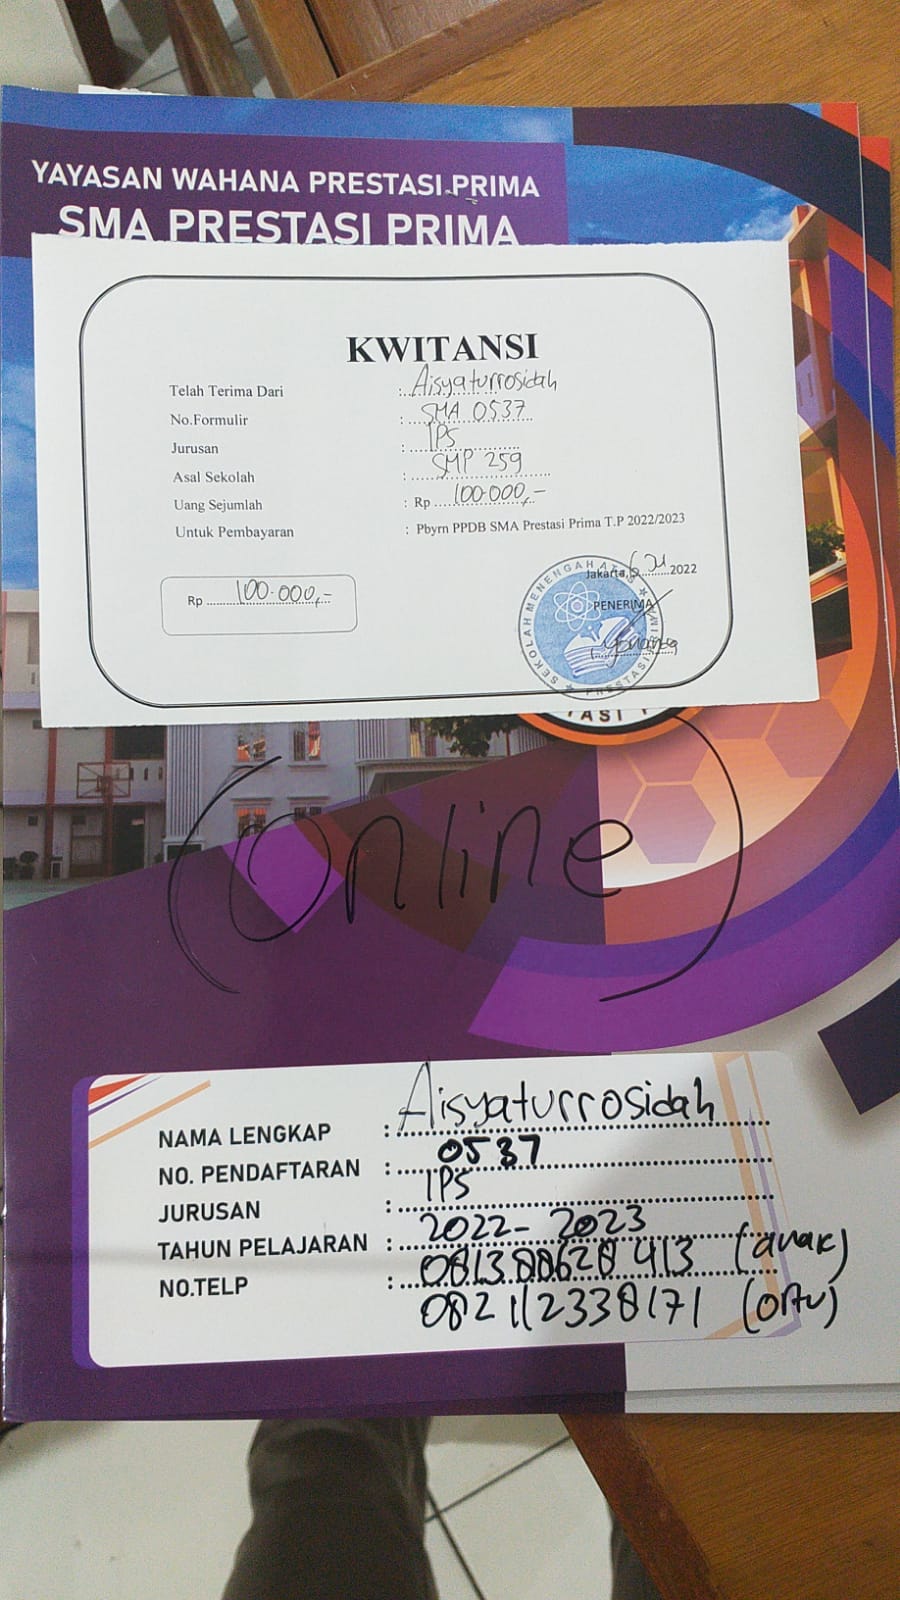 YAYASAN WAHANA PRESTASI PRIMA
SMA PRESTASI PRIMA
KWITANSI
Telah Terima Dari : Aisyaturrosidah
No.Formulir : SMA 0537
Jurusan : IPS
Asal Sekolah : SMP 259
Uang Sejumlah : Rp 100.000,-
Untuk Pembayaran : Pbyrn PPDB SMA Prestasi Prima T.P 2022/2023
Jakarta, 2022
Rp 100.000,-
PENERIMA
SEKOLAH MENENGAH ATAS
PRESTASI
TASI
(Online)
NAMA LENGKAP : Aisyaturrosidah
NO. PENDAFTARAN : 0537
JURUSAN : IPS
TAHUN PELAJARAN : 2022-2023
NO.TELP : 081388628413 (anak)
082112338171 (ortu)